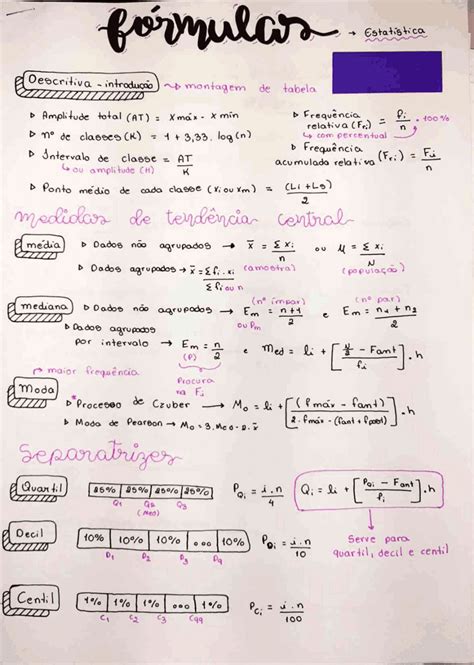 fórmulas → Estatística
Descritiva - introdução → montagem de tabela
▷ Amplitude total (AT) = xmáx - x min
▷ nº de classes (K) = 1 + 3,33. log (n)
▷ Intervalo de classe = AT/K
↳ ou amplitude (H)
▷ Ponto médio de cada classe (Xi ou Xm) = (Li + Ls)/2
▷ Frequência relativa (Fri) = Pi/n . 100%
↳ com percentual
▷ Frequência acumulada relativa (Fri) = Fi/n
medidas de tendência central
média ▷ Dados não agrupados → x̄ = Σxi/n ou μ = Σxi/N
(população)
▷ Dados agrupados → x̄ = Σfi.xi/Σfi ou n (amostra)
mediana ▷ Dados não agrupados → Em = n+1/2 e Em = n1 + n2/2
(nº ímpar) ou Pm (nº par)
▷ Dados agrupados por intervalo → Em = n/2 e Med = li + [N/2 - Fant/fi] . h
(P)
Procura na Fi
→ maior frequência
Moda ▷ *Processo de Czuber → Mo = li + [(fmáx - fant)/2.fmáx - (fant + fpost)] . h
▷ Moda de Pearson → Mo = 3.Me - 2.x̄
Separatrizes
Quartil 25% 25% 25% 25% PQi = i.n/4 Qi = li + [PQi - Fant/fi] . h
Q1 Q2 Q3
(MED)
Decil 10% 10% 10% ooo 10% PDi = i.n/10
D1 D2 D3 D9
Serve para
quartil, decil e centil
Centil 1% 1% 1% ooo 1% PCi = i.n/100
C1 C2 C3 C99